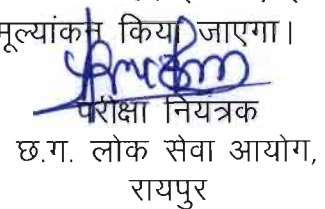 मूल्यांकन किया जाएगा।
परीक्षा नियत्रक
छ.ग. लोक सेवा आयोग,
रायपुर